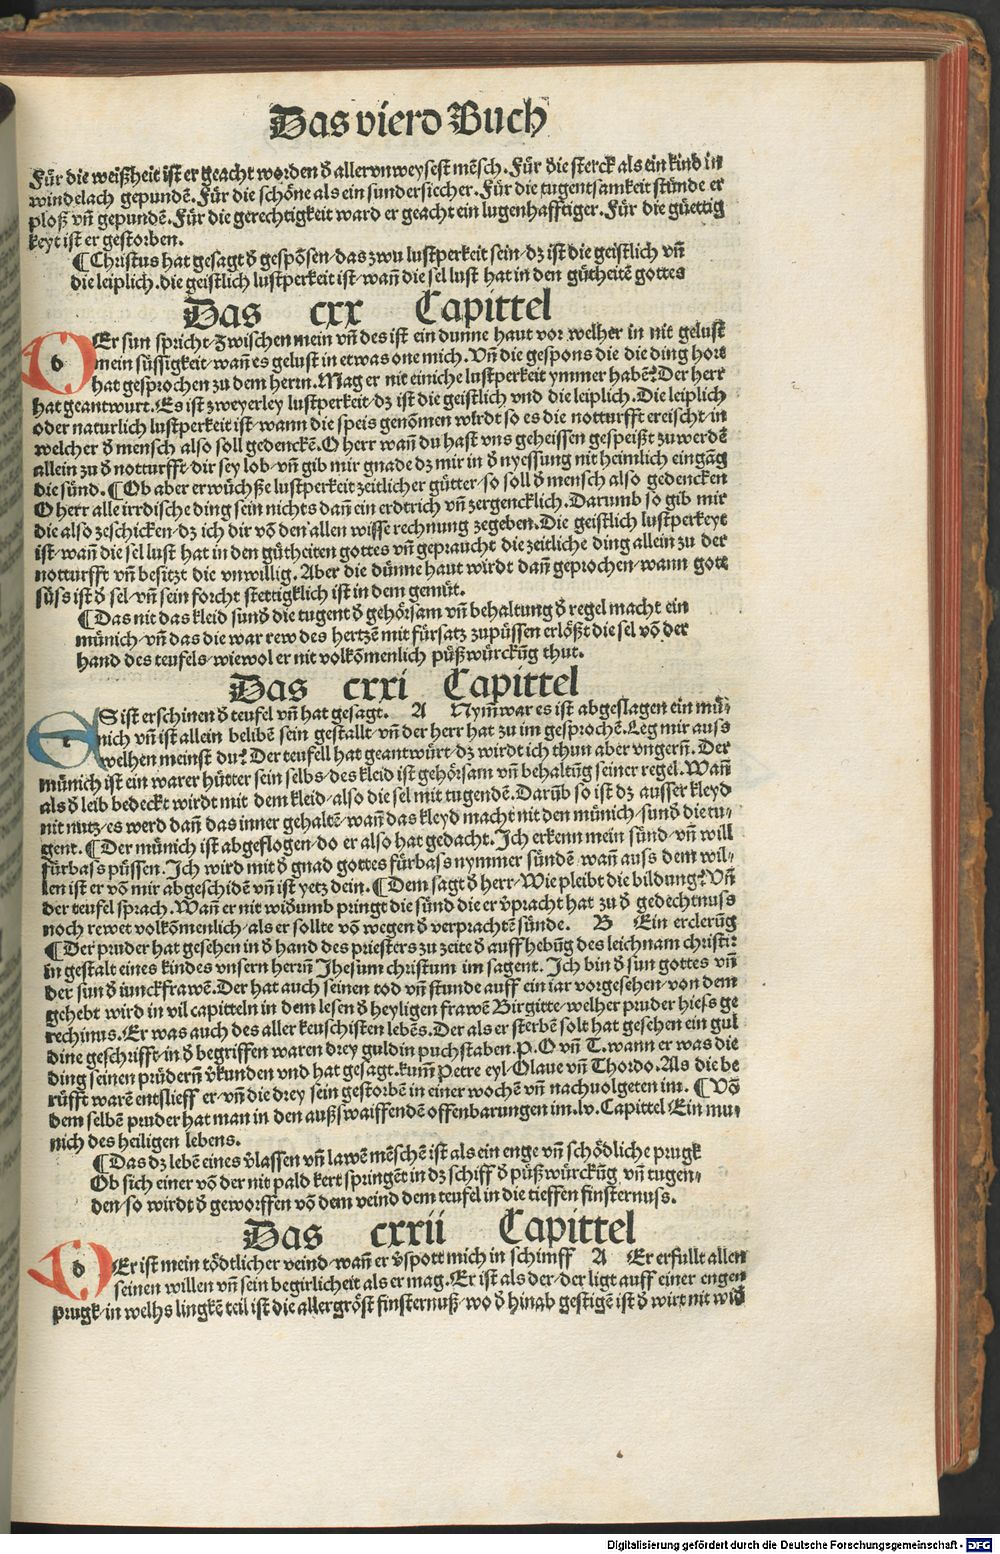 Das vierd Buch
Für die weißheit ist er geacht worden đ allervnweysest mēsch. Für die sterck als ein kind in
windelach gepundē. Für die schöne als ein sundersiecher. Für die tugentsamkeit stünde er
ploß vñ gepundē. Für die gerechtigkeit ward er geacht ein lugenhafftiger. Für die güettig
keyt ist er gestorben.
¶ Christus hat gesagt đ gespōsen/das zwu lustperkeit sein/dz ist die geistlich vñ
die leiplich. die geistlich lustperkeit ist/wañ die sel lust hat in den gütheitē gottes
Das cxx Capittel
d Er sun spricht/zwischen mein vñ des ist ein dunne haut vor welher in nit gelust
mein süssigkeit/wañ es gelust in etwas one mich. Vñ die gespons die die ding hort
hat gesprochen zu dem herrn. Mag er nit einiche lustperkeit ymmer habē? Der herr
hat geantwurt. Es ist zweyerley lustperkeit/dz ist die geistlich vnd die leiplich. Die leiplich
oder naturlich lustperkeit ist/wann die speis genōmen wirdt so es die notturfft ereischt/in
welcher đ mensch also soll gedenckē. O herr wañ du hast vns geheissen gespeißt zu werdē
allein zu đ notturfft/dir sey lob/vñ gib mir gnade dz mir in đ nyessung nit heimlich eingāg
die sünd. ¶ Ob aber erwüchße lustperkeit zeitlicher gütter/so soll đ mensch also gedencken
O herr alle irrdische ding sein nichts dañ ein erdtrich vñ zergencklich. Darumb so gib mir
die also zeschicken/dz ich dir vō den allen wisse rechnung zegeben. Die geistlich lustperkeyt
ist/wañ die sel lust hat in den gütheiten gottes vñ gepraucht die zeitliche ding allein zu der
notturfft vñ besitzt die vnwillig. Aber die dünne haut wirdt dañ geprochen/wann gott
süss ist đ sel/vñ sein forcht stettigklich ist in dem gemüt.
¶ Das nit das kleid sund die tugent đ gehörsam vñ behaltung đ regel macht ein
münich/vñ das die war rew des hertzē mit fürsatz zupüssen erlößt die sel vō der
hand des teufels/wiewol er nit volkōmenlich püßwürckūg thut.
Das cxxi Capittel
e S ist erschinen đ teufel vñ hat gesagt. A Nym̃ war es ist abgeslagen ein mü⸗
nich vñ ist allein belibē sein gestallt/vñ der herr hat zu im gesprochē. Leg mir auss
welhen meinst du? Der teufell hat geantwürt/dz wirdt ich thun aber vngern̄. Der
münich ist ein warer hütter sein selbs/des kleid ist gehörsam vñ behaltūg seiner regel. Wañ
als đ leib bedeckt wirdt mit dem kleid/also die sel mit tugendē. Darūb so ist dz ausser kleyd
nit nutz/es werd dañ das inner gehaltē/wañ das kleyd macht nit den münich/sund die tu⸗
gent. ¶ Der münich ist abgeflogen/do er also hat gedacht. Ich erkenn mein sünd/vñ will
fürbass püssen. Ich wird mit đ gnad gottes fürbass nymmer sündē/wañ auss dem wil⸗
len ist er vō mir abgeschidē vñ ist yetz dein. ¶ Dem sagt đ herr/Wie pleibt die bildung? Vñ
der teufel sprach. Wañ er nit widumb pringt die sünd die er v̄pracht hat zu đ gedechtnuss
noch rewet volkōmenlich/als er sollte vō wegen đ verprachtē sünde. B Ein erclerūg
¶ Der pruder hat gesehen in đ hand des priesters zu zeite đ auffhebūg des leichnam christi:
in gestalt eines kindes vnsern herrn̄ Jhesum christum im sagent. Ich bin đ sun gottes vñ
der sun đ iunckfrawē. Der hat auch seinen tod vñ stunde auff ein iar vorgesehen/von dem
gehebt wird in vil capitteln in dem lesen đ heyligen frawē Birgitte/welher pruder hiess ge
rechinus. Er was auch des aller keuschisten lebēs. Der als er sterbē solt hat gesehen ein gul
dine geschrifft/in đ begriffen waren drey guldin puchstaben. P. O vñ T. wann er was die
ding seinen prüdern̄ v̄kunden vnd hat gesagt. kum̃ Petre eyl/Olaue vñ Thordo. Als die be
rüfft warē entslieff er/vñ die drey sein gestorbē in einer wochē vñ nachuolgeten im. ¶ Vō
dem selbē pruder hat man in den außswaiffendē offenbarungen im. lv. Capittel Ein mu⸗
nich des heiligen lebens.
¶ Das dz lebē eines v̄lassen vñ lawē mēschē ist als ein enge vñ schödliche prugk
Ob sich einer vō der nit pald kert springēt in dz schiff đ püßwürckūg vñ tugen⸗
den/so wirdt đ geworffen vō dem veind dem teufel in die tieffen finsternuss.
Das cxxii Capittel
d Er ist mein tödtlicher veind/wañ er v̄spott mich in schimff A Er erfullt allen
seinen willen vñ sein begirlicheit als er mag. Er ist als der/der ligt auff einer engen
prugk/in welhs lingkē teil ist die allergröst finsternuß/wo đ hinab gestigē ist đ wirt nit wid
Digitalisierung gefördert durch die Deutsche Forschungsgemeinschaft - DFG